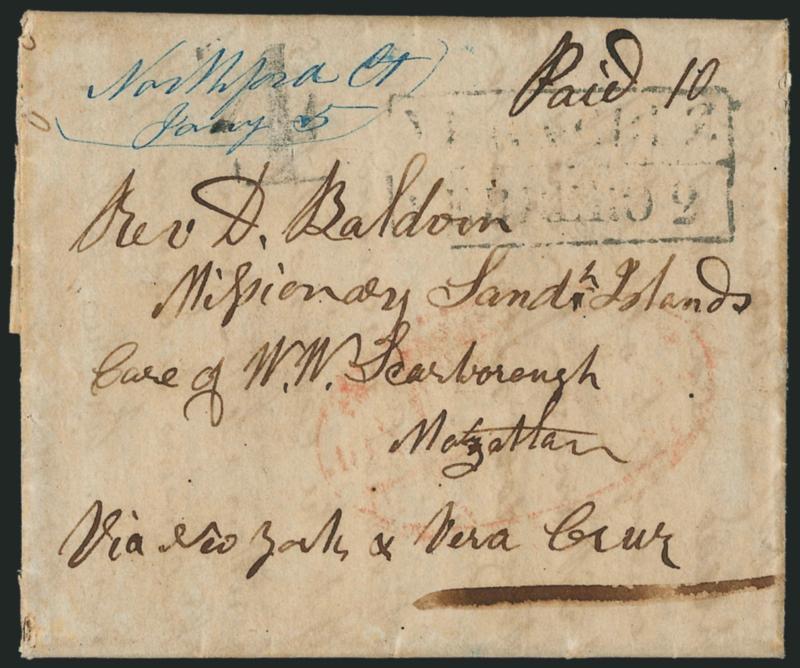 Northford Ct
Jany 5
Paid 10
4
FEBRERO 2
Rev D. Baldwin
Missionary Sandh Islands
Care of W.W. Scarborough
Matzattan
Via New York & Vera Cruz